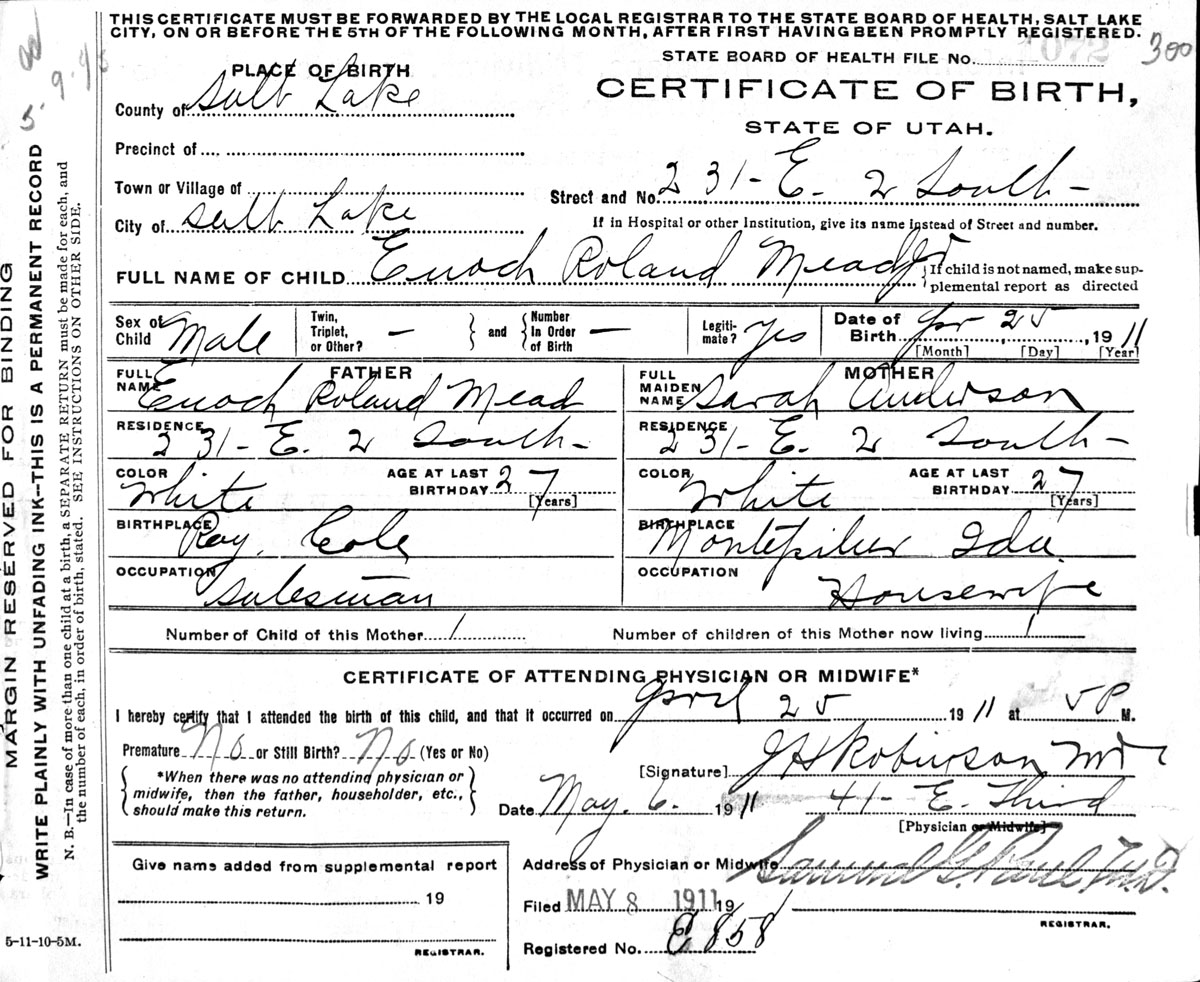 THIS CERTIFICATE MUST BE FORWARDED BY THE LOCAL REGISTRAR TO THE STATE BOARD OF HEALTH, SALT LAKE
CITY, ON OR BEFORE THE 5TH OF THE FOLLOWING MONTH, AFTER FIRST HAVING BEEN PROMPTLY REGISTERED.
STATE BOARD OF HEALTH FILE No. 1072 300
PLACE OF BIRTH
CERTIFICATE OF BIRTH,
STATE OF UTAH.
County of Salt Lake
Precinct of
Town or Village of
Street and No. 231 - E. 2 South -
City of Salt Lake
If in Hospital or other Institution, give its name instead of Street and number.
FULL NAME OF CHILD Enoch Roland Mead Jr
If child is not named, make sup-
plemental report as directed
Sex of Child Male
Twin, Triplet, or Other? -
and
Number In Order of Birth -
Legiti-mate? Yes
Date of Birth Apr 25, 1911
[Month] [Day] [Year]
FATHER
FULL NAME Enoch Roland Mead
RESIDENCE 231 - E. 2 South -
COLOR White
AGE AT LAST BIRTHDAY 27
[Years]
BIRTHPLACE
OCCUPATION Salesman
MOTHER
FULL MAIDEN NAME Sarah Anderson
RESIDENCE 231 - E. 2 South -
COLOR White
AGE AT LAST BIRTHDAY 27
[Years]
BIRTHPLACE Montpilier Ida
OCCUPATION Housewife
Number of Child of this Mother 1
Number of children of this Mother now living 1
CERTIFICATE OF ATTENDING PHYSICIAN OR MIDWIFE*
I hereby certify that I attended the birth of this child, and that it occurred on April 25 1911 at 5 P M.
Premature No or Still Birth? No (Yes or No)
*When there was no attending physician or
midwife, then the father, householder, etc.,
should make this return.
[Signature] J H Robinson MD
Date May. 6. 1911 41 - E. Third
[Physician or Midwife]
Give name added from supplemental report
19
REGISTRAR.
Address of Physician or Midwife
Samuel G. Paul M.D.
Filed MAY 8 1911 19
REGISTRAR.
Registered No. E 858
5-11-10-5M.
MARGIN RESERVED FOR BINDING
WRITE PLAINLY WITH UNFADING INK--THIS IS A PERMANENT RECORD
N. B.—In case of more than one child at a birth, a SEPARATE RETURN must be made for each, and
the number of each, in order of birth, stated. SEE INSTRUCTIONS ON OTHER SIDE.